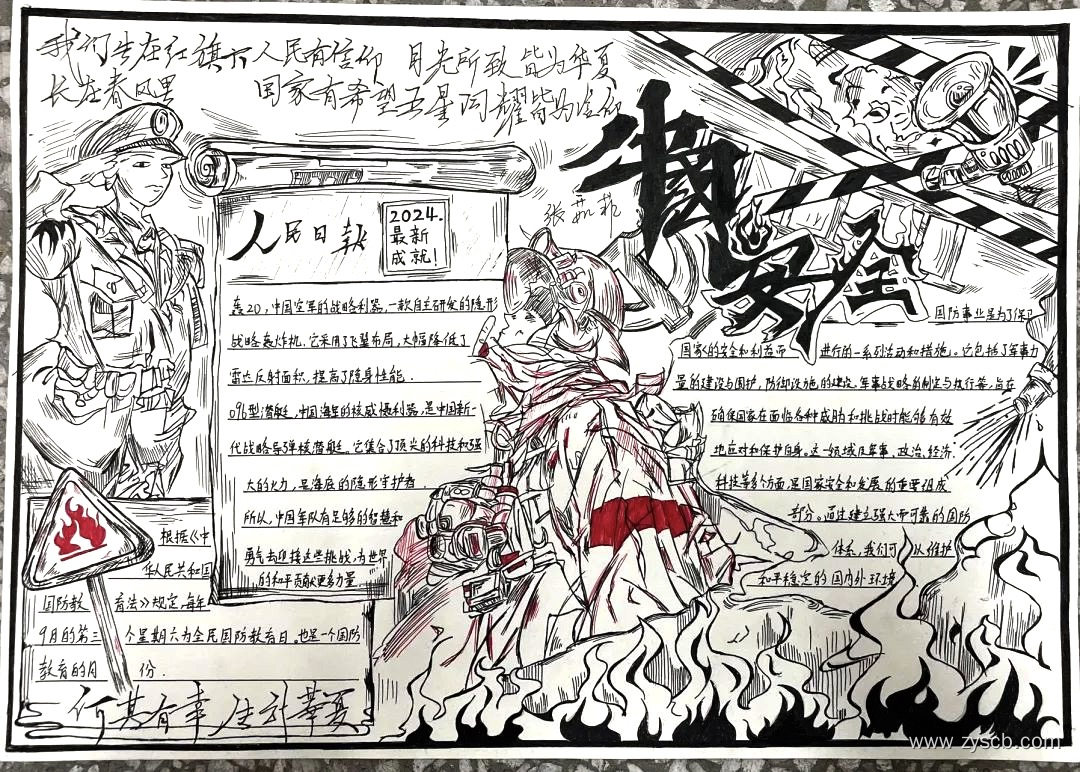 我们生在红旗下 人民有信仰 月光所致 皆为华夏
长在春风里 国家有希望 五星闪耀皆为信仰
国安全
人民日报
2024.
最新
成就!
轰20,中国空军的战略利器,一款自主研发的隐形
战略轰炸机.它采用了飞翼布局,大幅降低了
雷达反射面积,提高了隐身性能.
096型潜艇,中国海军的核威慑利器,是中国新一
代战略导弹核潜艇.它集合了顶尖的科技和强
大的火力,是海底的隐形守护者.
所以,中国军队有足够的智慧和
勇气去迎接这些挑战,为世界
的和平贡献更多力量
国防事业是为了保卫
国家的安全和利益而 进行的一系列活动和措施。它包括了军事力
量的建设与维护,防御设施的建设,军事战略的制定与执行等,旨在
确保国家在面临各种威胁和挑战时能够有效
地应对和保护自身。这一领域及军事,政治,经济,
科技等多个方面,是国家安全和发展的重要组成
部分。通过建立强大而可靠的国防
体系,我们可 以维护
和平稳定的国内外环境
根据《中
华人民共和国
国防教 育法》规定,每年
9月的第三 个星期六为全民国防教育日。也是一个国防
教育的月 份.
何其有幸 生于華夏
www.zyscb.com